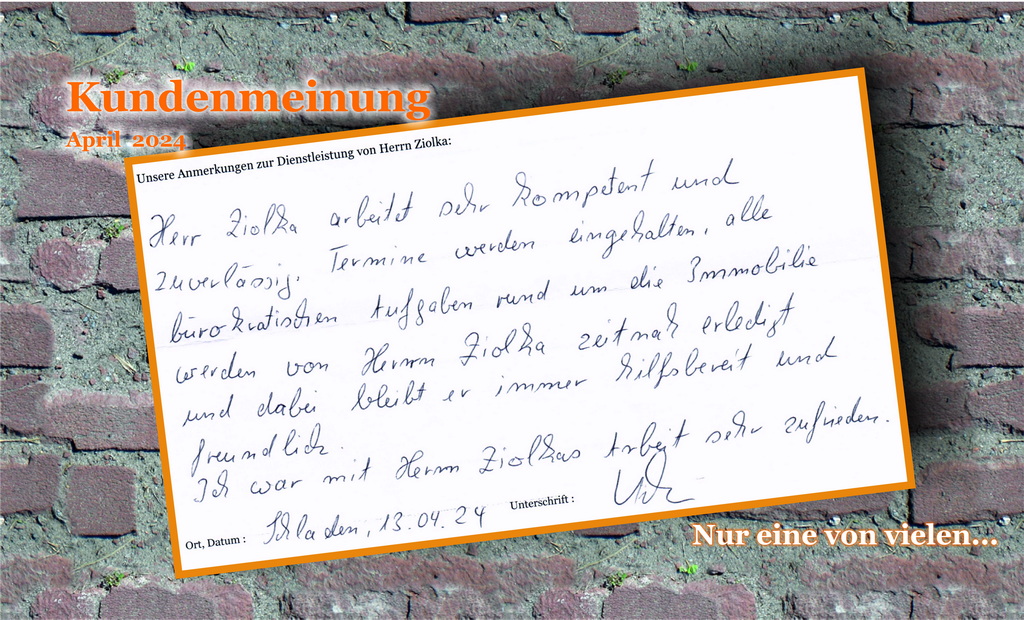 Kundenmeinung
April 2024
Unsere Anmerkungen zur Dienstleistung von Herrn Ziolka:
Herr Ziolka arbeitet sehr kompetent und
zuverlässig. Termine werden eingehalten, alle
bürokratischen Aufgaben rund um die Immobilie
werden von Herrn Ziolka zeitnah erledigt
und dabei bleibt er immer hilfsbereit und
freundlich.
Ich war mit Herrn Ziolkas Arbeit sehr zufrieden.
Ort, Datum : Schladen, 13.04.24 Unterschrift :
Nur eine von vielen...